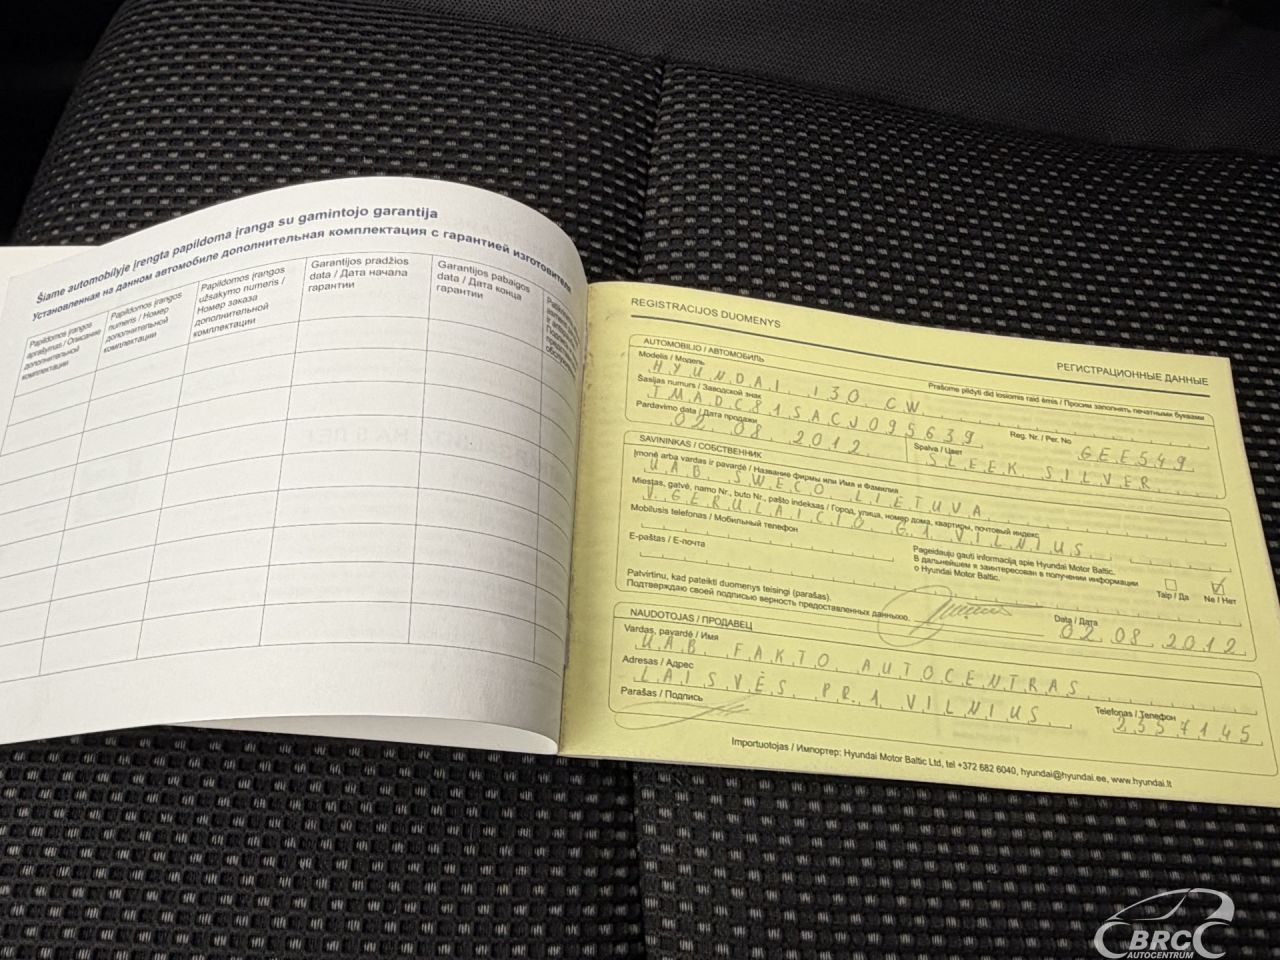 Šiame automobilyje įrengta papildoma įranga su gamintojo garantija
Установленная на данном автомобиле дополнительная комплектация с гарантией изготовителя
Papildomos įrangos aprašymas / Описание дополнительной комплектации
Papildomos įrangos numeris / Номер дополнительной комплектации
Papildomos įrangos užsakymo numeris / Номер заказа дополнительной комплектации
Garantijos pradžios data / Дата начала гарантии
Garantijos pabaigos data / Дата конца гарантии
REGISTRACIJOS DUOMENYS
РЕГИСТРАЦИОННЫЕ ДАННЫЕ
AUTOMOBILIO / АВТОМОБИЛЬ
Prašome pildyti didžiosiomis raidėmis / Просим заполнять печатными буквами
Modelis / Модель
HYUNDAI I30 CW
Šasijas numurs / Заводской знак
TMADC81SACJ095639
Reg. Nr. / Рег. No
GEE549
Pardavimo data / Дата продажи
02.08.2012.
Spalva / Цвет
SLEEK SILVER
SAVININKAS / СОБСТВЕННИК
Įmonė arba vardas ir pavardė / Название фирмы или Имя и Фамилия
UAB SWECO LIETUVA
Miestas, gatvė, namo Nr., buto Nr., pašto indeksas / Город, улица, номер дома, квартиры, почтовый индекс
V. GERULAIČIO G1 VILNIUS
Mobilusis telefonas / Мобильный телефон
E-paštas / Е-почта
Pageidauju gauti informaciją apie Hyundai Motor Baltic.
В дальнейшем я заинтересован в получении информации
о Hyundai Motor Baltic.
Taip / Да
Ne / Нет
Patvirtinu, kad pateikti duomenys teisingi (parašas).
Подтверждаю своей подписью верность предоставленных данных.
Data / Дата
02.08.2012
NAUDOTOJAS / ПРОДАВЕЦ
Vardas, pavardė / Имя
UAB FAKTO AUTOCENTRAS
Adresas / Адрес
LAISVĖS PR.1 VILNIUS
Telefonas / Телефон
2357145
Parašas / Подпись
Importuotojas / Импортер: Hyundai Motor Baltic Ltd, tel +372 682 6040, hyundai@hyundai.ee, www.hyundai.lt
BRC
AUTOCENTRUM